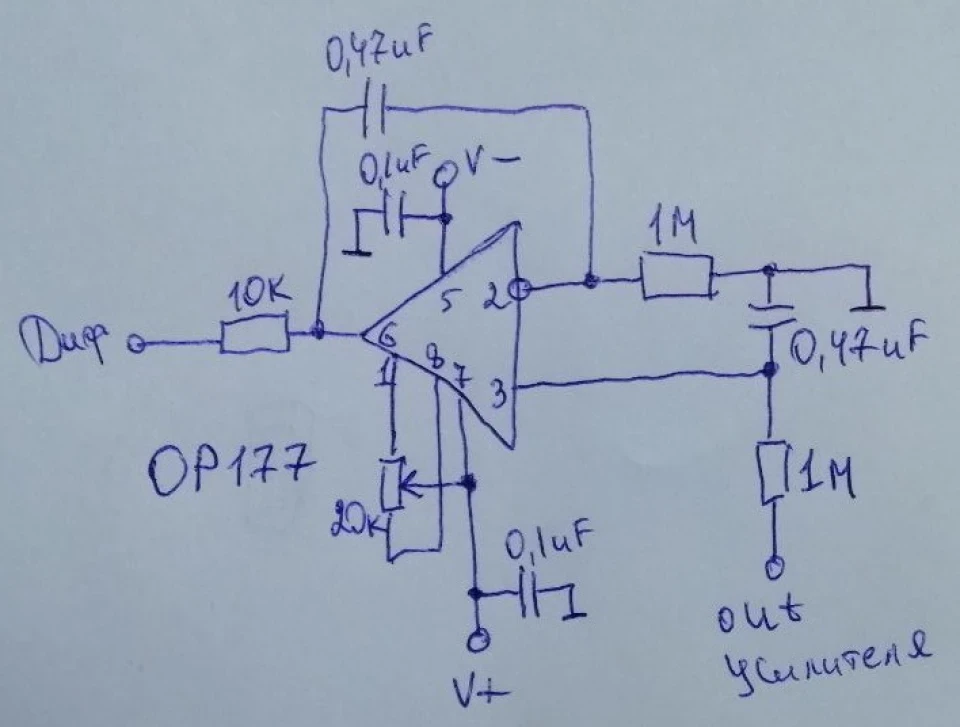 0,47uF
0,1uF
V-
1M
10K
5
2
Диф
6
0,47uF
1
8
7
3
OP177
1M
20K
0,1uF
out
усилителя
V+